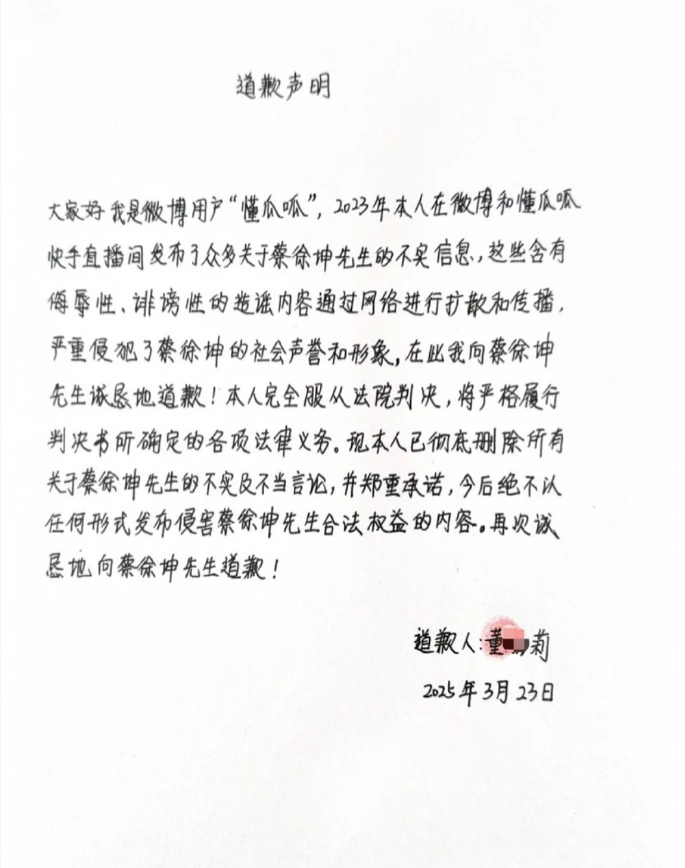 道歉声明
大家好我是微博用户“懂瓜呱”，2023年本人在微博和懂瓜呱
快手直播间发布了众多关于蔡徐坤先生的不实信息，这些含有
侮辱性、诽谤性的造谣内容通过网络进行扩散和传播，
严重侵犯了蔡徐坤的社会声誉和形象，在此我向蔡徐坤
先生诚恳地道歉！本人完全服从法院判决，将严格履行
判决书所确定的各项法律义务。现本人已彻底删除所有
关于蔡徐坤先生的不实及不当言论，并郑重承诺，今后绝不以
任何形式发布侵害蔡徐坤先生合法权益的内容。再次诚
恳地向蔡徐坤先生道歉！
道歉人：董莉
2025年3月23日